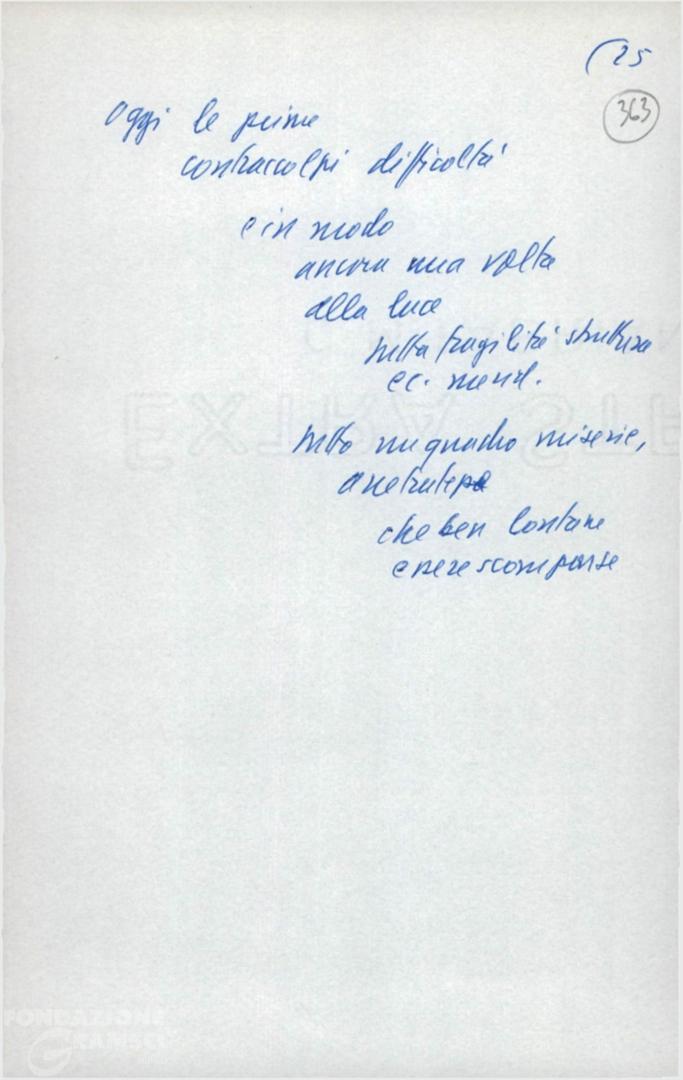 (25
363
Oggi le prime
contraccolpi difficoltà
e in modo
ancora una volta
alla luce
tutta fragilità struttura
ec. merid.
tutto un quadro miserie,
arretratezze
che ben lontane
essere scomparse
EXTRA ST
FONDAZIONE
GRAMSCI